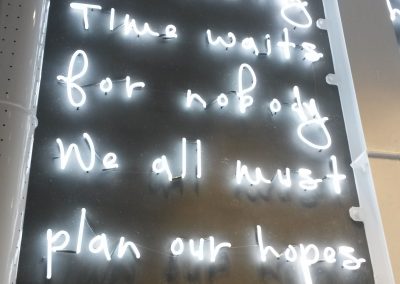 Time waits
for nobody
We all must
plan our hopes